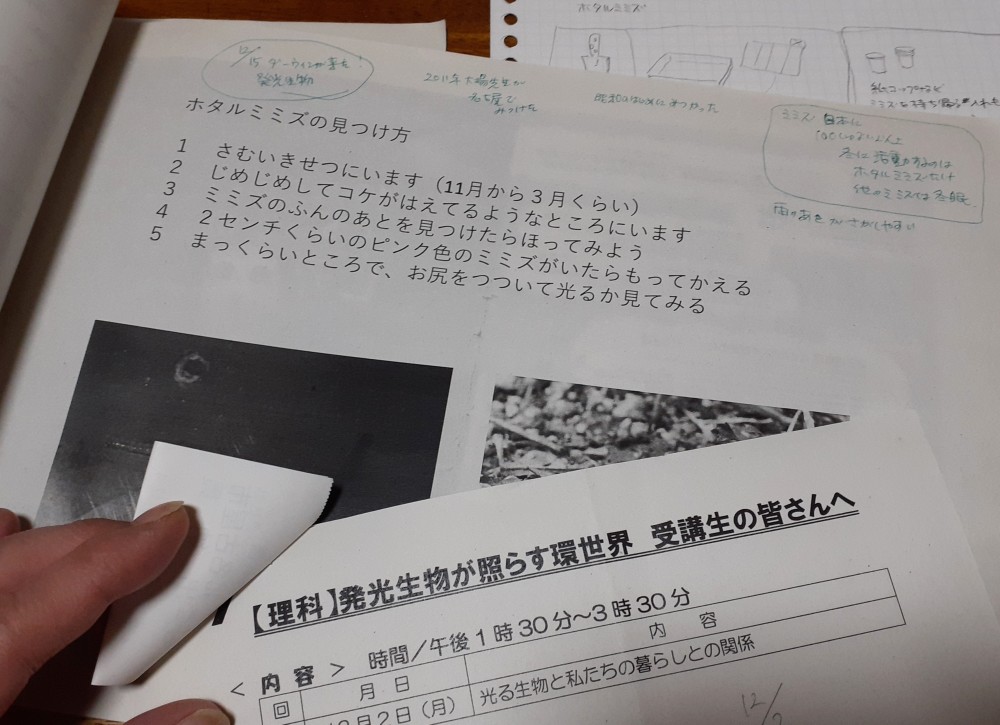 ホタルミミズ
紙コップなど
ミミズを持ち帰る 入れもの
12/15 ダーウィンが来た
発光生物
2011年 大場先生が
名古屋で
みつけた
昭和のはじめに みつかった
ミミズ 日本に
冬に活動するのは
ホタルミミズだけ
他のミミズは冬眠
雨のあとが さがしやすい
ホタルミミズの見つけ方
1 さむいきせつにいます(11月から3月くらい)
2 じめじめしてコケがはえてるようなところにいます
3 ミミズのふんのあとを見つけたらほってみよう
4 2センチくらいのピンク色のミミズがいたらもってかえる
5 まっくらいところで、お尻をつついて光るか見てみる
【理科】発光生物が照らす環世界 受講生の皆さんへ
<内 容> 時間/午後1時30分~3時30分
回 月 日 内 容
2日(月) 光る生物と私たちの暮らしとの関係
12/